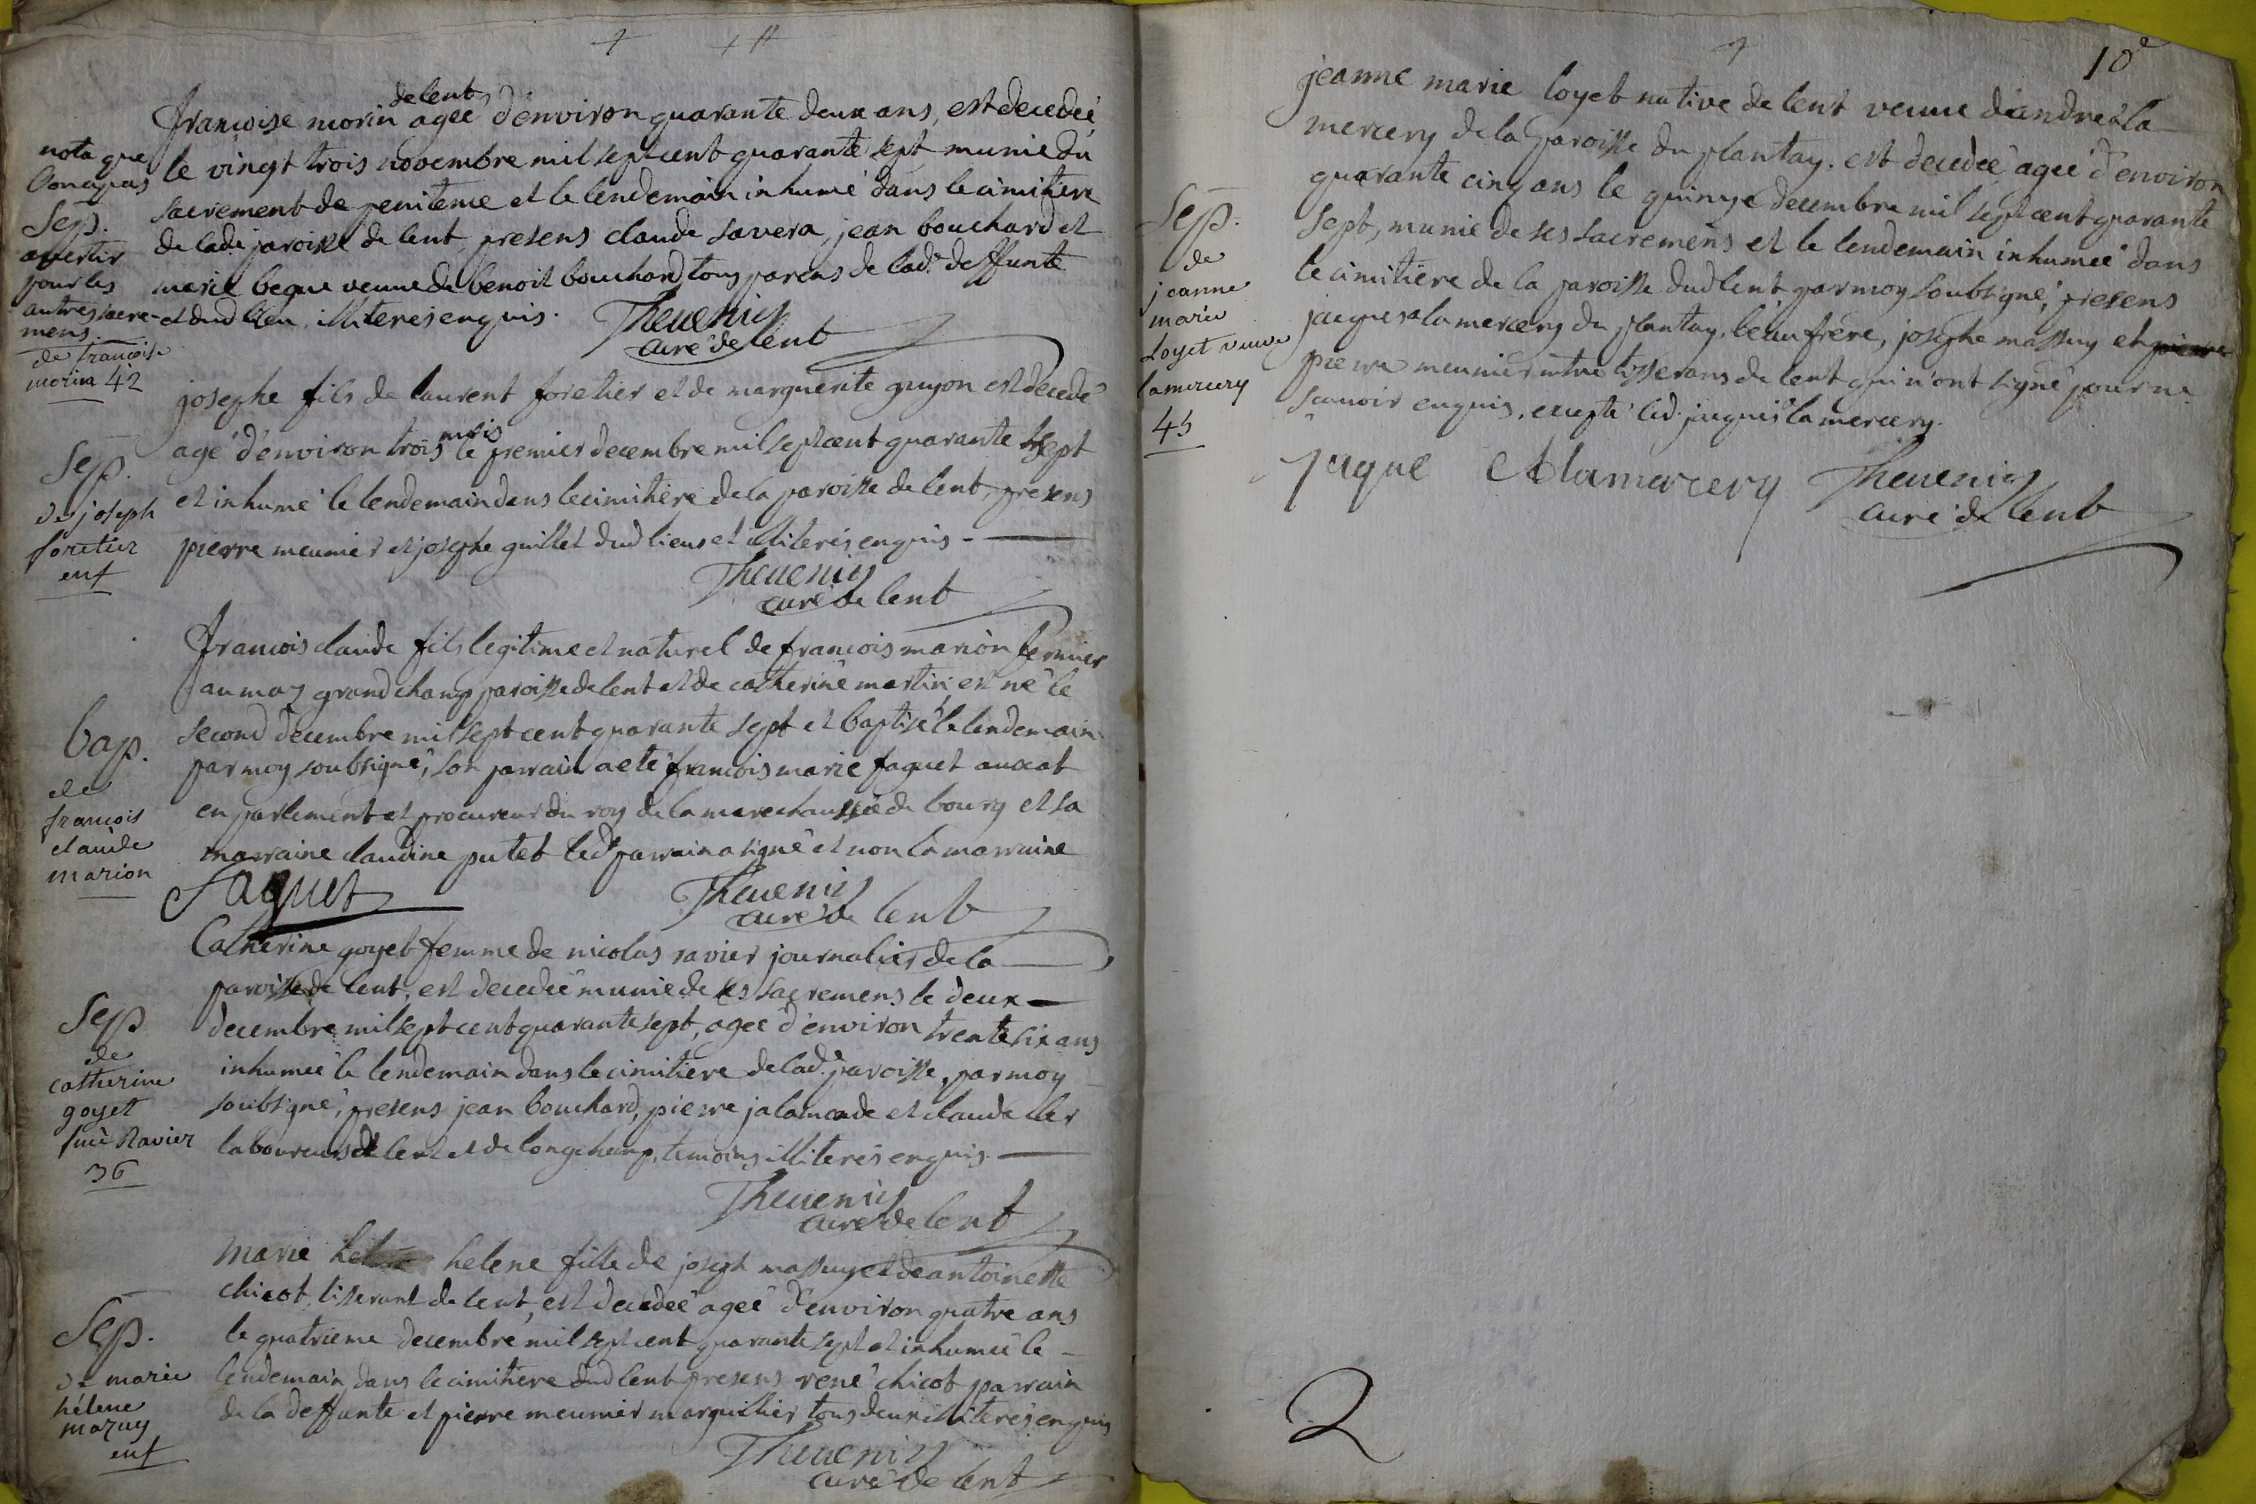 nota que
l'on n'a pas
Sep.
avertir
pour les
autres sacre-
mens
de francoise
morin 42
francoise morin de lent agée d'environ quarante deux ans, est decedée
le vingt trois novembre mil sept cent quarante sept munie du
sacrement de penitence et le lendemain inhumé dans le cimitiere
de lad. paroisse de lent, presens claude savera, jean bouchard et
marie beque veuve de benoit bouchard tous parens de lad. deffunte
et dud lieu, illiterés enquis.
Thevenin
curé de lent
Sep.
de joseph
foretier
enf
josephe fils de laurent foretier et de marguerite guyon est decedé
agé d'environ trois mois le premier decembre mil sept cent quarante sept
et inhumé le lendemain dans le cimitiere de la paroisse de lent, presens
pierre meunier et josephe guillet dud lieu et illiterés enquis
Thevenin
curé de lent
bap.
de
francois
claude
marion
francois claude fils legitime et naturel de francois marion fermier
au mas grand champ paroisse de lent et de catherine martin, est né le
second decembre mil sept cent quarante sept et baptisé le lendemain
par moy soubsigné, son parrain a eté francois marie faguet avocat
en parlement et procureur du roy de la marechaussée de bourg et sa
marraine claudine putet led. parrain a signé et non la marraine
faguet
Thevenin
curé de lent
Sep
de
catherine
goyet
fme Ravier
36
Catherine goyet femme de nicolas ravier journalier de la
paroisse de lent, est decedée munie de ses sacremens le deux
decembre mil sept cent quarante sept, agée d'environ trente six ans
inhumée le lendemain dans le cimitiere de lad. paroisse, par moy
soubsigné, presens jean bouchard, pierre et claude
laboureurs de lent et de longchamp, temoins illiterés enquis.
Thevenin
curé de lent
Sep.
de marie
hélene
mazuy
enf
marie helene fille de joseph massuy et de antoinette
chicot tisserant de lent, est decedée agée d'environ quatre ans
le quatrieme decembre mil sept cent quarante sept et inhumée le
lendemain dans le cimitiere dud lent presens rené chicot parrain
de la deffunte et pierre meunier marguillier tous deux illiterés enquis
Thevenin
curé de lent
10e
Sep.
de
jeanne
marie
Loyet veuve
lamercery
45
jeanne marie loyet native de lent veuve d'andre a la
mercery de la paroisse du plantay. est decedée agée d'environ
quarante cinq ans le quinze decembre mil sept cent quarante
sept, munie de ses sacremens et le lendemain inhumée dans
le cimitiere de la paroisse dud lent par moy soubsigné, presens
jacques a la mercery du plantay, beaufrere, josephe massuy et
pierre meunier tisserans de lent qui n'ont signé pour ne
scavoir enquis, excepté led. jacques a la mercery.
Jaque Alamercery
Thevenin
curé de lent
2